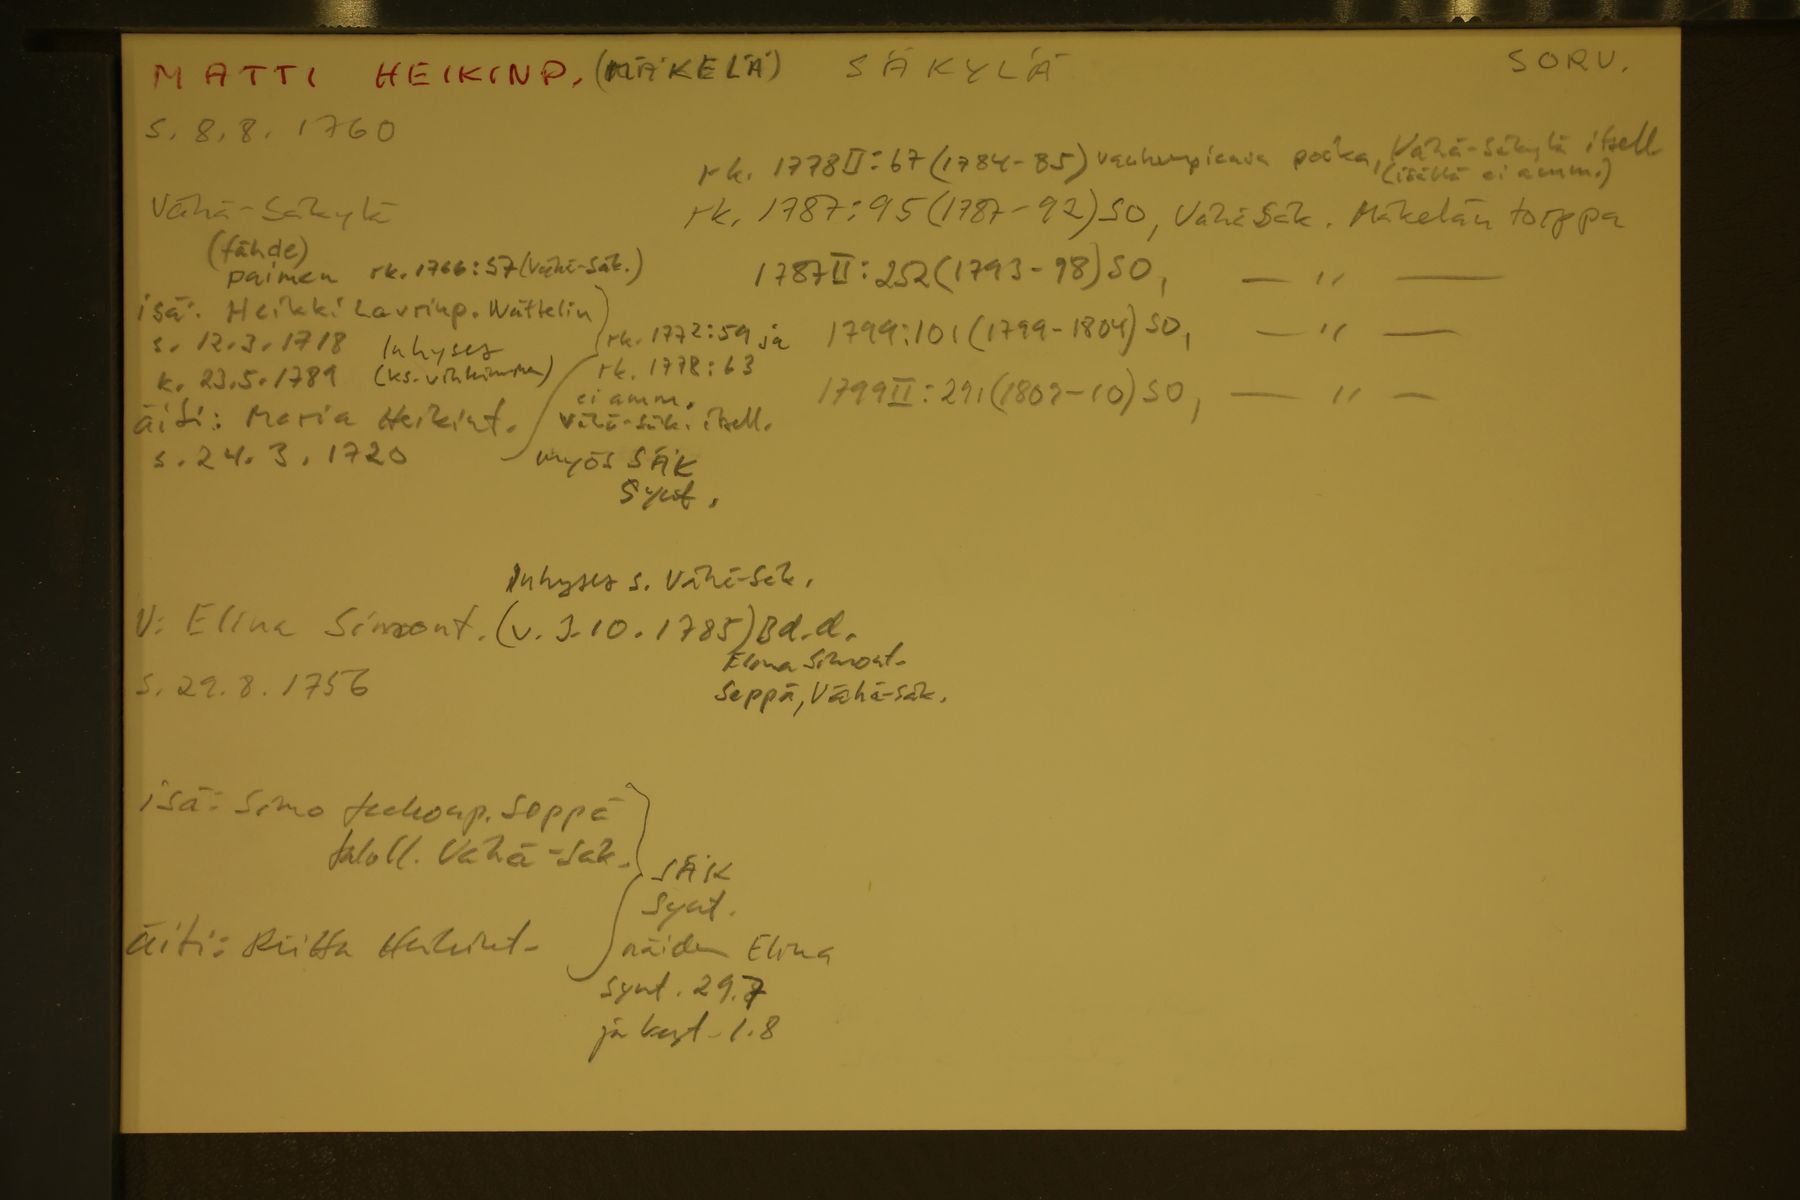 MATTI HEIKINP. (MÄKELÄ) SÄKYLÄ SORV.
s. 8.8. 1760
rk. 1778 II: 67 (1784-85) vanhempiensa poika, Vähä-Säkylä itsell.
(isällä ei amm.)
Vähä-Säkylä
rk. 1787: 95 (1787-92) SO, Vähä Säk. Mäkelän torppa
(fähde)
paimen rk. 1766: 57 (Vähä-Säk.)
1787 II: 252 (1793-98) SO, — " —
isä: Heikki Laurinp. Wättelin
s. 12.3.1718 Inhyses rk. 1772: 59 ja
1799: 101 (1799-1804) SO, — " —
k. 23.5.1789 (ks. vihkiminen) rk. 1778: 63
ei amm.
1799 II: 291 (180 -10) SO, — " —
äiti: Maria Heikint. Vähä-Säk. itsell.
s. 24.3.1720 myös SÄK
Synt.
Inhyses s. Vähä-Säk.
V: Elina Simont. (v. 3.10.1785) Bd.d.
Elina Simont.
s. 29.8.1756 Seppä, Vähä-Säk.
isä: Simo Seppä
taloll. Vähä-Säk.
SÄK
Synt.
äiti: Riitta Heikint. näiden Elina
synt. 29.7
ja kast. 1.8